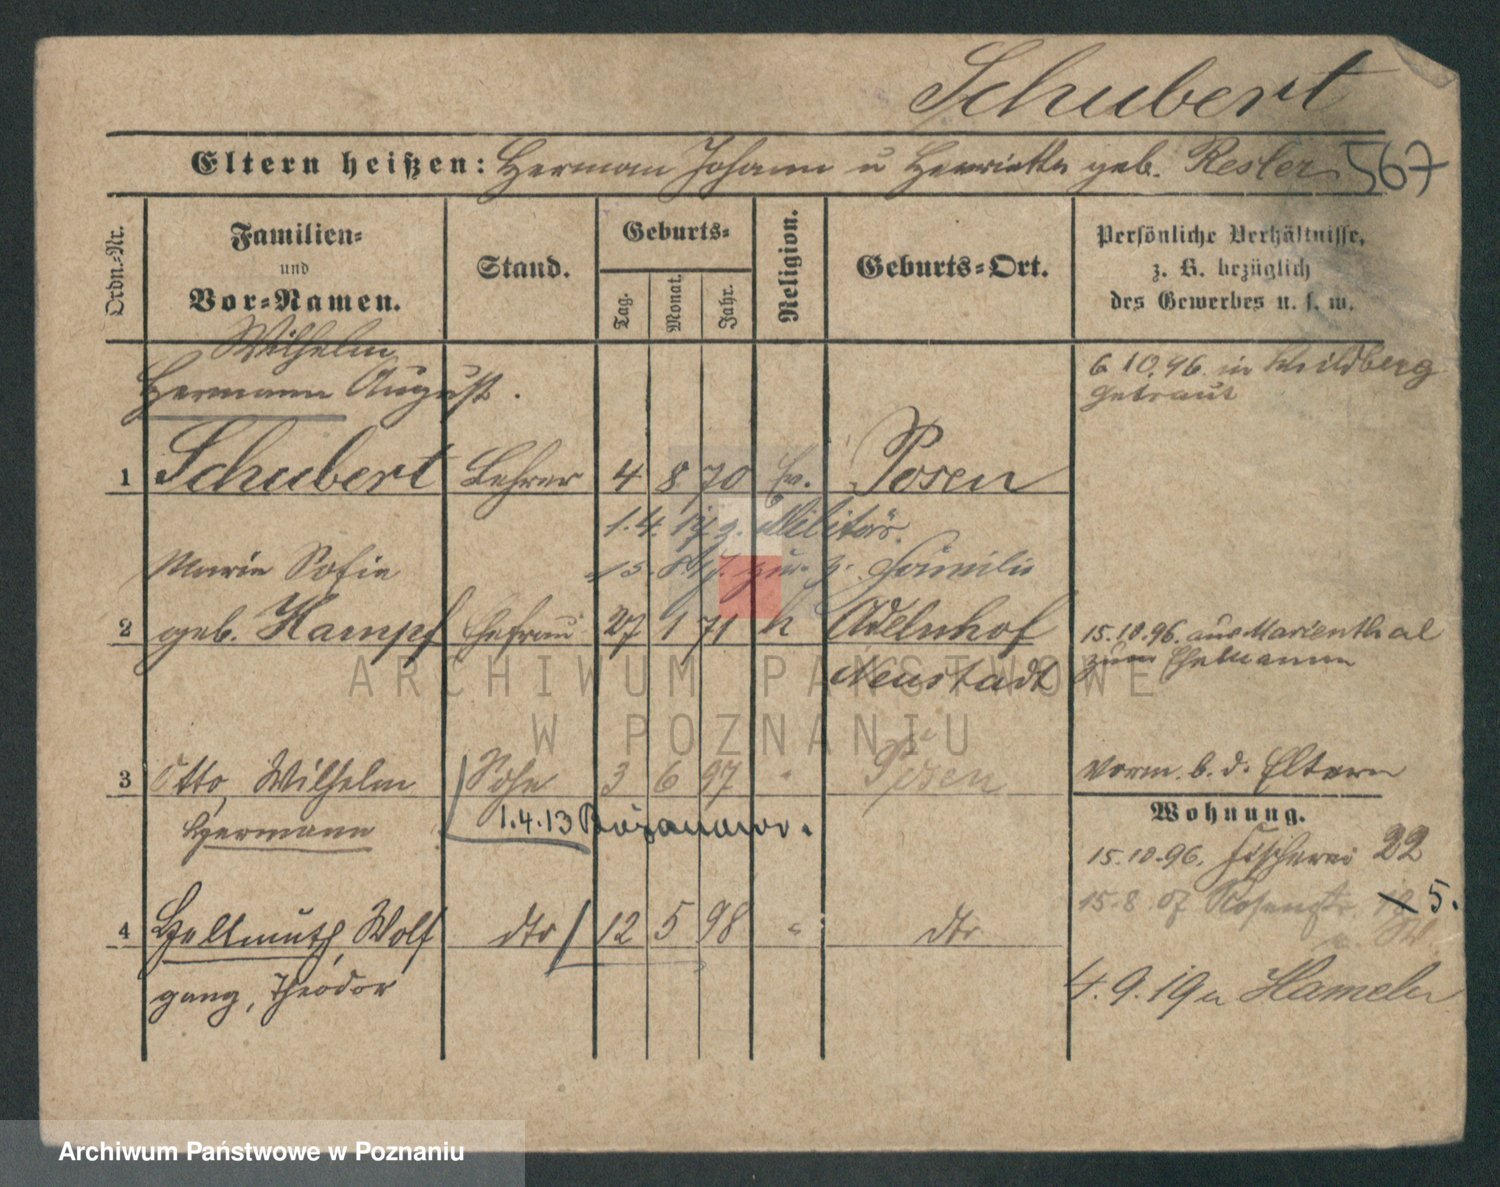 Schubert
Eltern heißen: Herman Johann u Henriette geb. Resler 567
Ordn.-Nr.
Familien-
und
Vor-Namen.
Stand.
Geburts-
Tag.
Monat.
Jahr.
Religion.
Geburts-Ort.
Persönliche Verhältnisse,
z. B. bezüglich
des Gewerbes u. s. w.
Wilhelm
Hermann August.
1 Schubert Lehrer 4 8 70 Ev. Posen
6 10.96. in Wildberg
getraut
1.4. z. Militär.
15. zur. z. Familie
Marie Sofie
2 geb. Kampf Ehefrau 27 1 71 k Adelnhof
Neustadt
15.10.96. aus Marienthal
zum Ehemann
3 Otto, Wilhelm Sohn 3 6 97 " Posen
Hermann
1.4.13
vorm. b. d. Eltern
Wohnung.
15.10.96. Fischerei 22
15.8.07 Rosenstr. 5.
4 Hellmuth, Wolf dto 12 5 98 " dto
gang, Theodor
4.9.19 n Hameln
ARCHIWUM PAŃSTWOWE
W POZNANIU
Archiwum Państwowe w Poznaniu